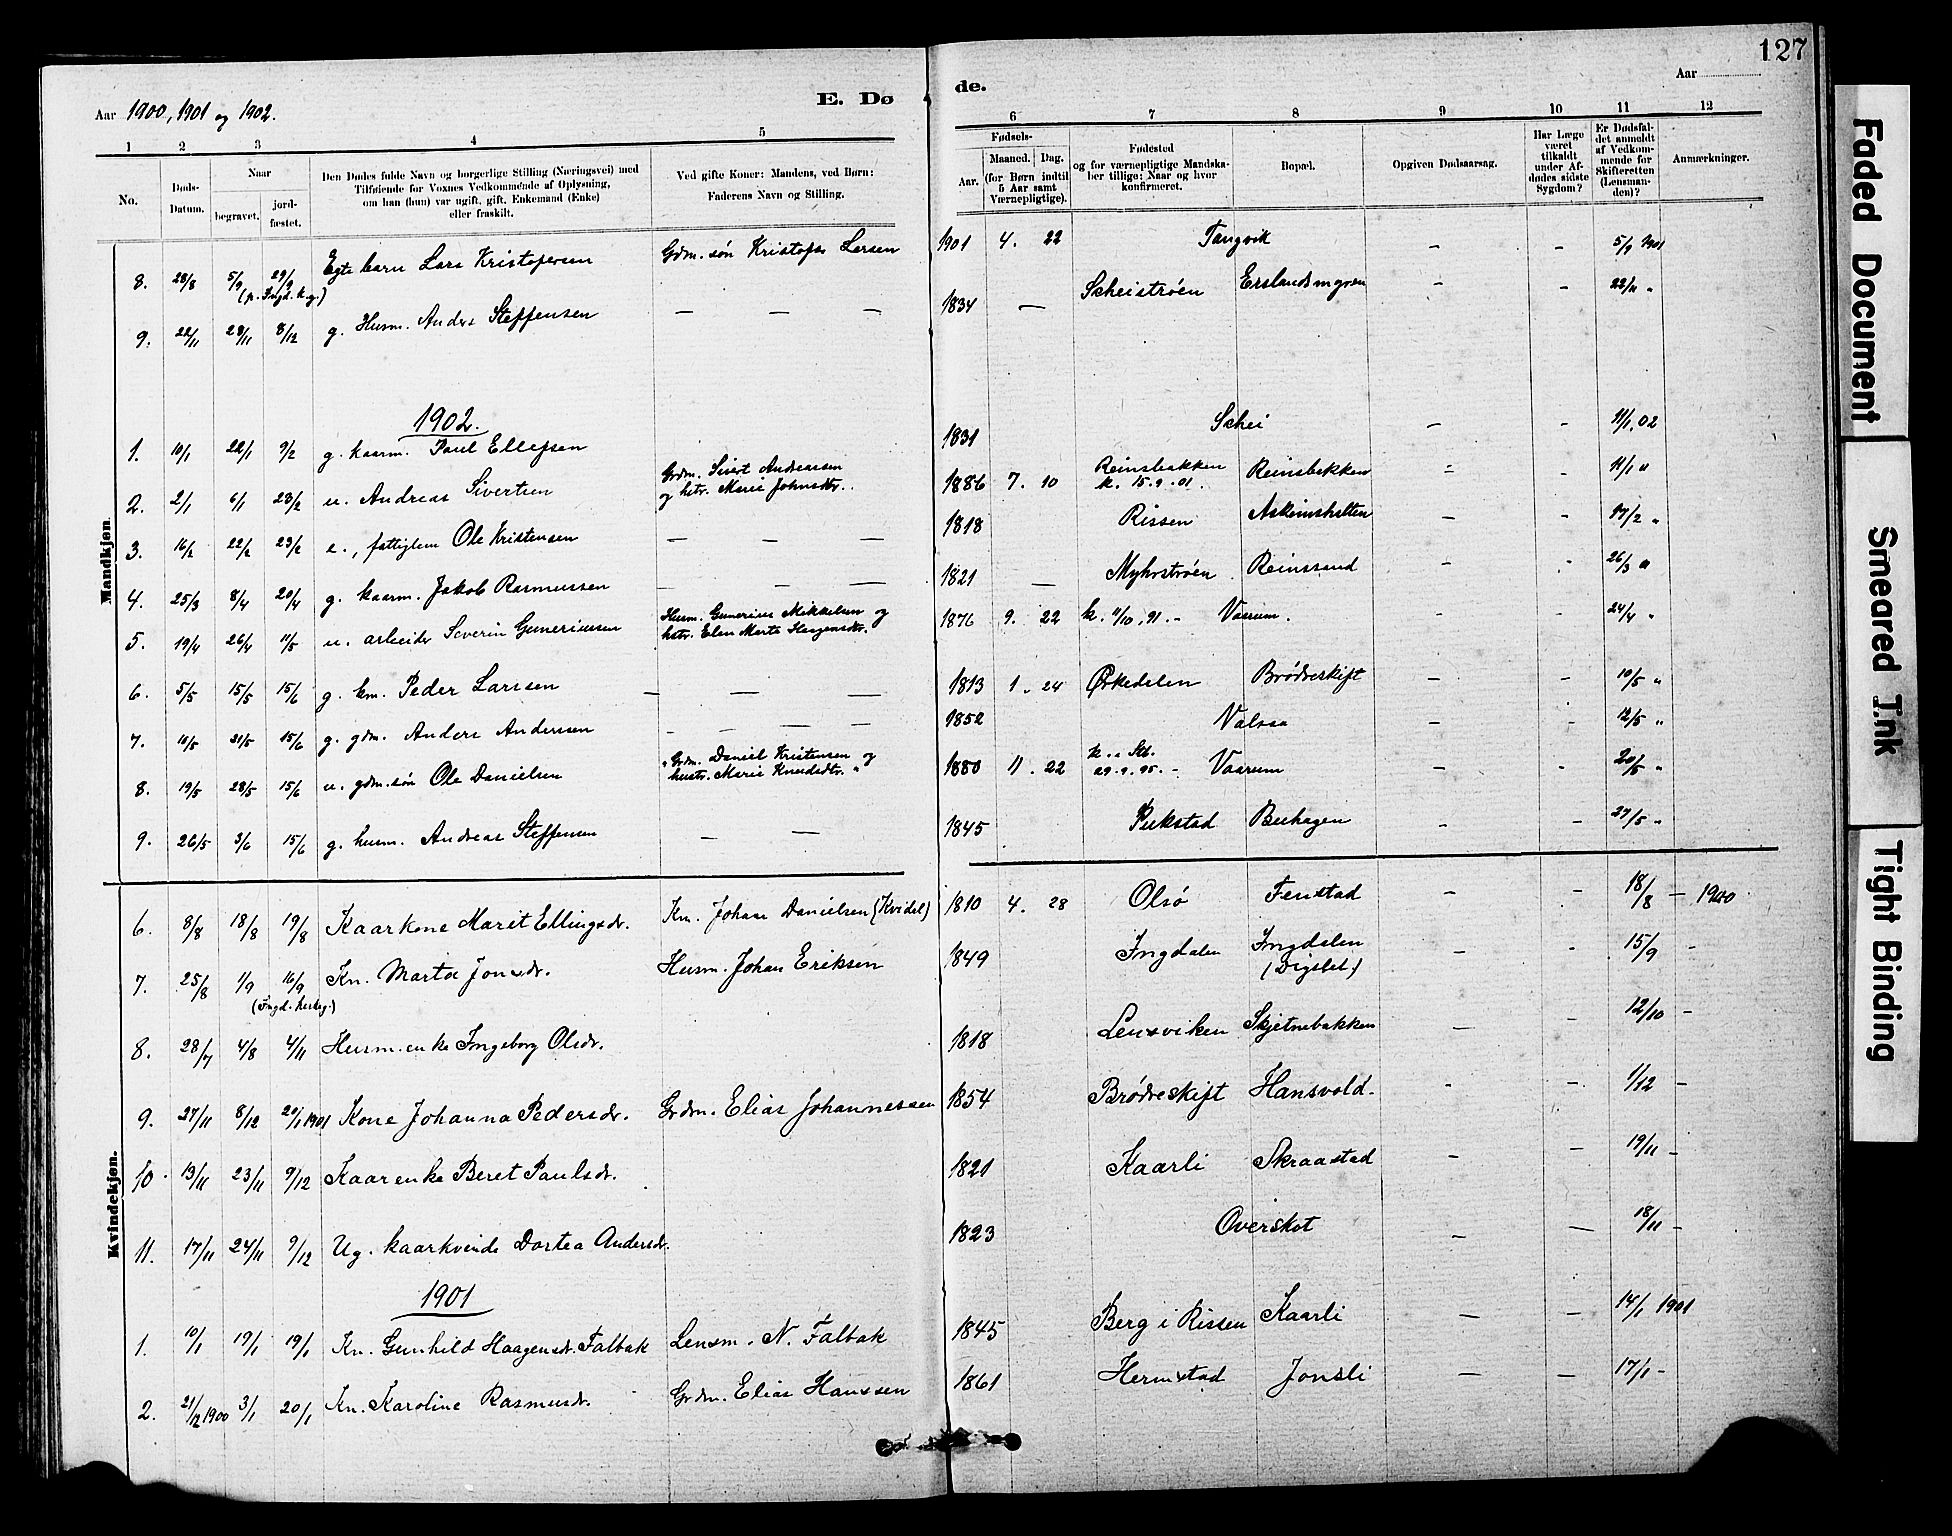 127
Aar 1900, 1901 og 1902.
E. Døde.
Aar
1 2 3 4 5 6 7 8 9 10 11 12
No.
Døds-Datum.
Naar
begravet.
jord-fæstet.
Den Dødes fulde Navn og borgerlige Stilling (Næringsvei) med
Tilføiende for Voxnes Vedkommende af Oplysning,
om han (hun) var ugift, gift, Enkemand (Enke)
eller fraskilt.
Ved gifte Koner: Mandens, ved Børn:
Faderens Navn og Stilling.
Fødsels-
Aar.
Maaned. Dag.
(for Børn indtil
5 Aar samt
Værnepligtige).
Fødested
og for værnepligtige Mandska-
ber tillige: Naar og hvor
konfirmeret.
Bopæl.
Opgiven Dødsaarsag.
Har Læge
været
tilkaldt
under Af-
dødes sidste
Sygdom?
Er Dødsfal-
det anmeldt
af Vedkom-
mende for
Skifteretten
(Lensman-
den)?
Anmærkninger.
Mandkjøn.
8. 28/8 5/9 29/9 Egte barn Lars Kristofersen Gdm. søn Kristofer Larsen 1901 4. 22 Tangvik – – 5/9 1901
(p. Ingd. k.g.)
9. 22/11 29/11 8/12 g. Husm. Anders Steffensen – – – 1834 – Scheistrøen Erslandsmyren – – 22/11 "
1902.
1. 10/1 22/1 9/2 g. kaarm. Paul Ellefsen 1831 Schei – – 11/1.02
2. 2/1 6/1 23/2 u. Andreas Sivertsen Grdm. Sivert Andreassen
og hstr. Marie Johnsdtr. 1886 7. 10 Reinsbakken
k. 15.9.01. Reinsbakken – – 11/1 "
3. 16/2 22/2 23/2 e., fattiglem Ole Kristensen – – – 1818 Rissen Askeimshalten – – 17/2 "
4. 25/3 8/4 20/4 g. kaarm. Jakob Rasmussen – – – 1821 – Myhrstrøen Reinssand – – 26/3 "
5. 19/4 26/4 11/5 u. arbeider Severin Guneriussen Husm. Gunerius Mikkelsen og
hstr. Elen Marta Haagensdr. 1876 9. 22 k. 11/10, 91. – Vaarum. – – 24/4 "
6. 5/5 15/5 15/6 g. km. Peder Larssen – – – 1813 1. 24 Ørkedalen Brødreskift – – 10/5 "
7. 10/5 21/5 15/6 g. gdm. Anders Anderssen – – – 1852 Valsaa – – 12/5 "
8. 19/5 28/5 15/6 u. gdm. søn Ole Danielsen "Grdm. Daniel Kristensen og
hustr. Marie Knudsdtr." 1880 11. 22 k. i Stb.
29.9.95. – Vaarum – – 20/5 "
9. 26/5 3/6 15/6 g. husm. Andreas Steffensen – – 1845 Pukstad Buhagen – – 27/5 "
Kvindekjøn.
6. 8/8 18/8 19/8 Kaarkone Marit Ellingsdr. Km. Johan Danielsen (Kvidel) 1810 4. 28 Olsø Fenstad – – 18/8 – 1900
7. 25/8 1/9 16/9 Kn. Marta Jonsdr. Husm. Johan Eriksen 1849 Ingdalen Ingdalen – – 15/9 –
8. 28/7 4/8 4/11 Husm. enke Ingeborg Olsdr. 1818 Lensviken Skjetnebakken – – 12/10 –
9. 27/11 8/12 20/1 1901 Kone Johanna Pedersdr. Grdm. Elias Johannessen 1854 Brødreskift Hansvold. – – 1/12 –
10. 13/11 23/11 9/12 Kaarenke Beret Paulsdr. 1821 Kaarli Skraastad – – 19/11 –
11. 17/11 24/11 9/12 Ug. kaarkvinde Dortea Andersdr. 1823 Overskot – – 18/11 –
1901
1. 10/1 19/1 19/1 Kn. Gunhild Haagensdr. Falbak Lensm. N. Falbak 1845 Berg i Rissen Kaarli – – 14/1 1901
2. 21/12 1900 3/1 20/1 Kn. Karoline Rasmusdr. Grdm. Elias Hanssen 1861 Hermstad Jonsli – – 17/1 –
Faded Document
Smeared Ink
Tight Binding